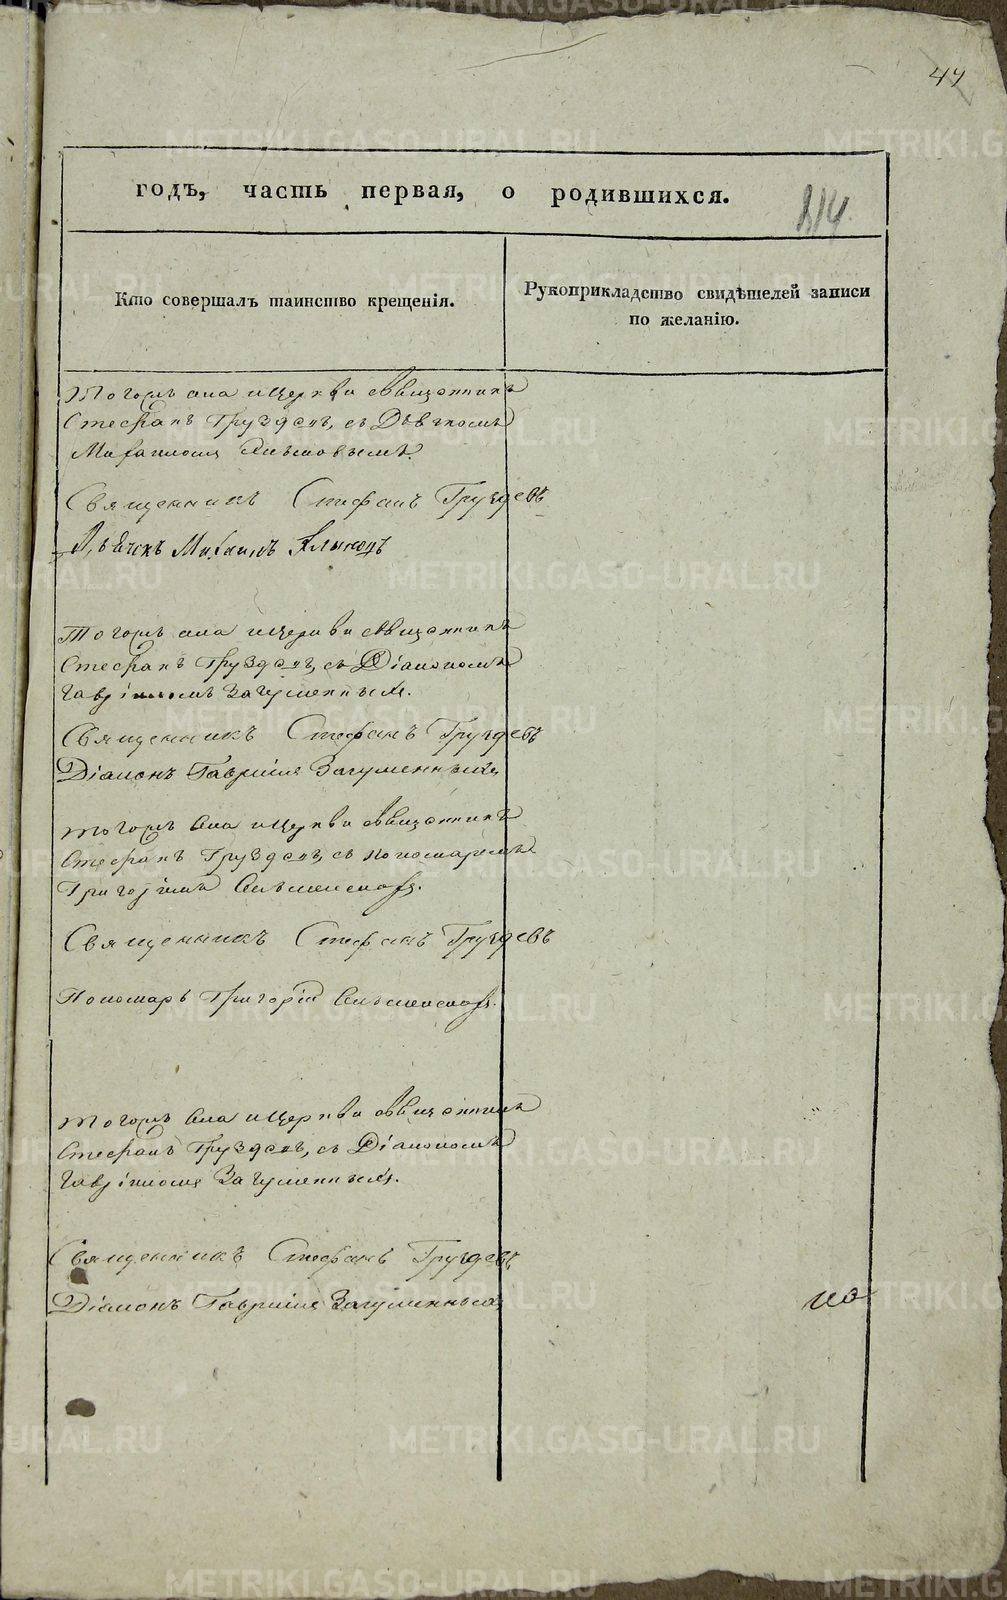 47
годъ, часть первая, о родившихся.
114
Кто совершалъ таинство крещенія.
Рукоприкладство свидѣтелей записи
по желанію.
тогожъ села и церкви священникъ
Стефанъ Груздевъ, съ Дьячкомъ
Михаиломъ
Священникъ Стефанъ Груздевъ
Дьячекъ Михаилъ
Тогожъ села и церкви священникъ
Стефанъ Груздевъ, съ Діакономъ
Гавріиломъ Загуменныхъ.
Священникъ Стефанъ Груздевъ
Діаконъ Гавріилъ Загуменныхъ
тогожъ села и церкви священникъ
Стефанъ Груздевъ, съ пономаремъ
Григоріемъ
Священникъ Стефанъ Груздевъ
Пономарь Григорій
тогожъ села и церкви священникъ
Стефанъ Груздевъ, съ Діакономъ
Гавріиломъ Загуменныхъ.
Священникъ Стефанъ Груздевъ
Діаконъ Гавріилъ Загуменныхъ
METRIKI.GASO-URAL.RU